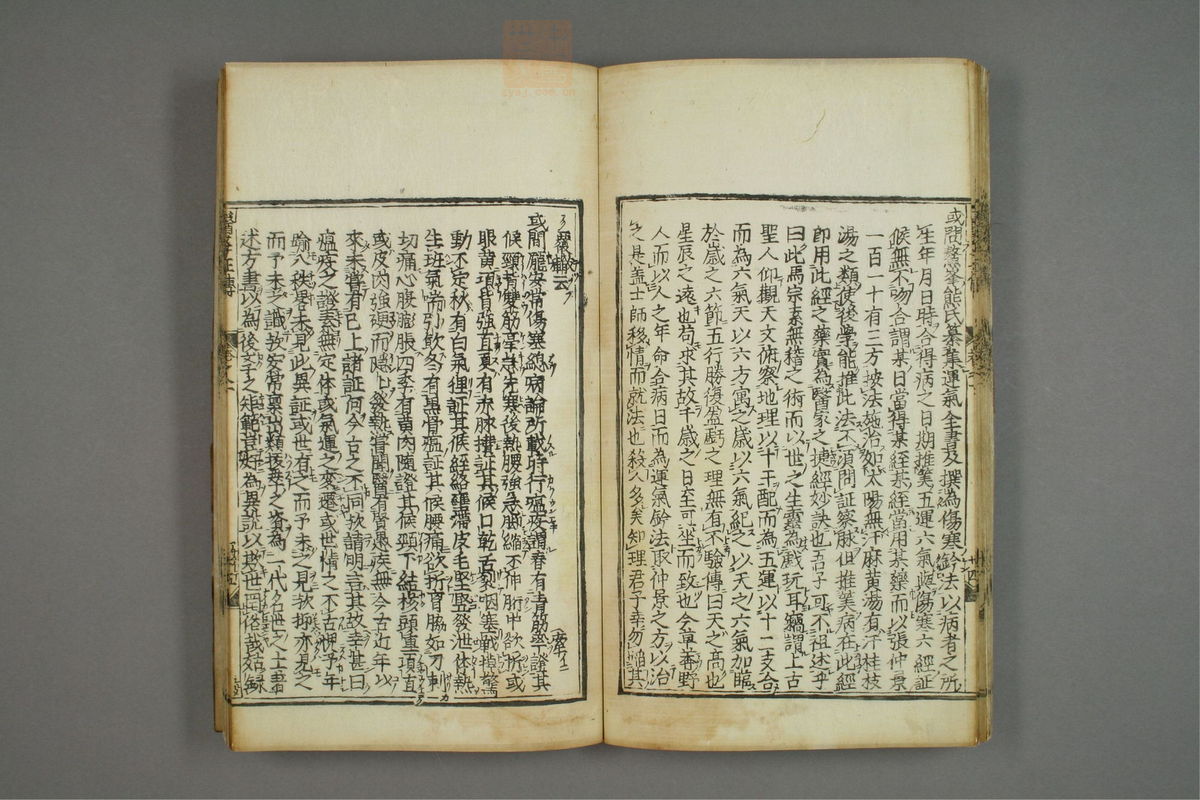 或問鰲峯熊氏纂集運氣全書及撰為傷寒鈐法以病者之所
生年月日時合得病之日期推筭五運六氣與傷寒六經証
候無不吻合謂某日當得某經某經當用某藥而以張仲景
一百一十有三方按法施治如太陽無汗麻黄湯有汗桂枝
湯之類使後學能推此法不須問証察脉但推筭病在此經
即用此經之藥實為醫家之捷經妙訣也吾子可不祖述乎
曰此馬宗素無稽之術而以世之生靈為戲玩耳竊謂上古
聖人仰觀天文俯察地理以十干配而為五運以十二支合
而為六氣天以六方寓之歲以六氣紀之以天之六氣加臨
於歲之六節五行勝復盈虧之理無有不驗傳曰天之高也
星辰之遠也苟求其故千歲之日至可坐而致也今草莽野
人而以人之年命合病日而為運氣鈐法取仲景之方以治
之是盖士師移情而就法也殺人多矣知理君子幸勿蹈其
覆轍云
或問龐安常傷寒總病論所載時行瘟疫謂春有青筋牽證其
候頸背雙筋牽急先寒後熱腰強急脚縮不伸胻中欲折或
眼黄項背強直夏有赤脉攢証其候口乾舌裂咽塞戰掉驚
動不定秋有白氣狸証其候經絡壅滯皮毛堅竪發泄体熱
生斑氣喘引飲冬有黒骨瘟証其候腰痛欲折胷脇如刀刺
切痛心腹膨脹四季有黄肉隨證其候頸下結核頭重項直
或皮肉強硬而隠隠發熱嘗聞醫有賢愚疾無今古近年以
來未嘗有已上諸証何今古之不同欤請明言其故幸甚曰
瘟疫之證素無定体或氣運之變遷或世情之不古懊予年
踰八秩畧未見此異証或世有之而予未之見欤抑亦見之
而予未之識欤安常素出類拔萃之資為一代名世之上吾
述方書以為後学之矩範豈好為異説以欺世罔俗哉姑録